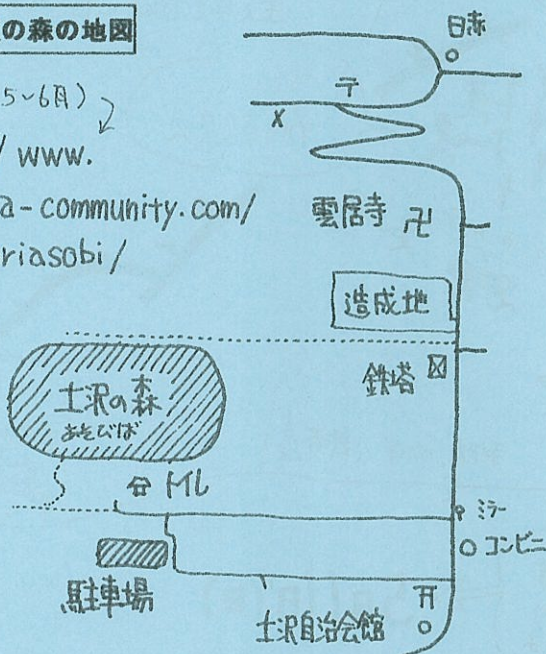 の森の地図
5~6月)
www.
a-community.com/
riasobi/
日赤
〒
X
雲居寺 卍
造成地
鉄塔
土沢の森
あそびば
トイレ
ミラー
コンビニ
駐車場
土沢自治会館